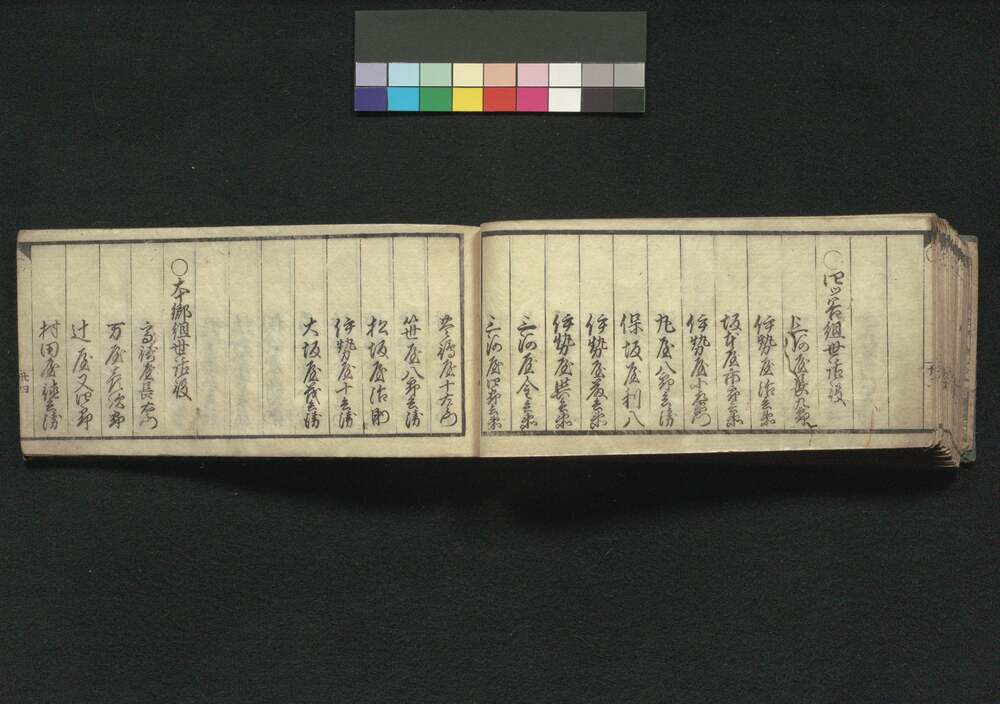 ○四ツ谷組世話役
三河屋長九郎
伊勢屋治兵衛
坂本屋市郎兵衛
伊勢屋小右衛門
丸屋八郎兵衛
保坂屋利八
伊勢屋藤兵衛
伊勢屋与兵衛
三河屋金兵衛
三河屋四郎兵衛
十右衛門
笹屋八郎兵衛
松坂屋治助
伊勢屋十兵衛
大坂屋茂兵衛
○本郷組世話役
高崎屋長右衛門
万屋次郎
辻屋又四郎
村田屋兵衛
廿四